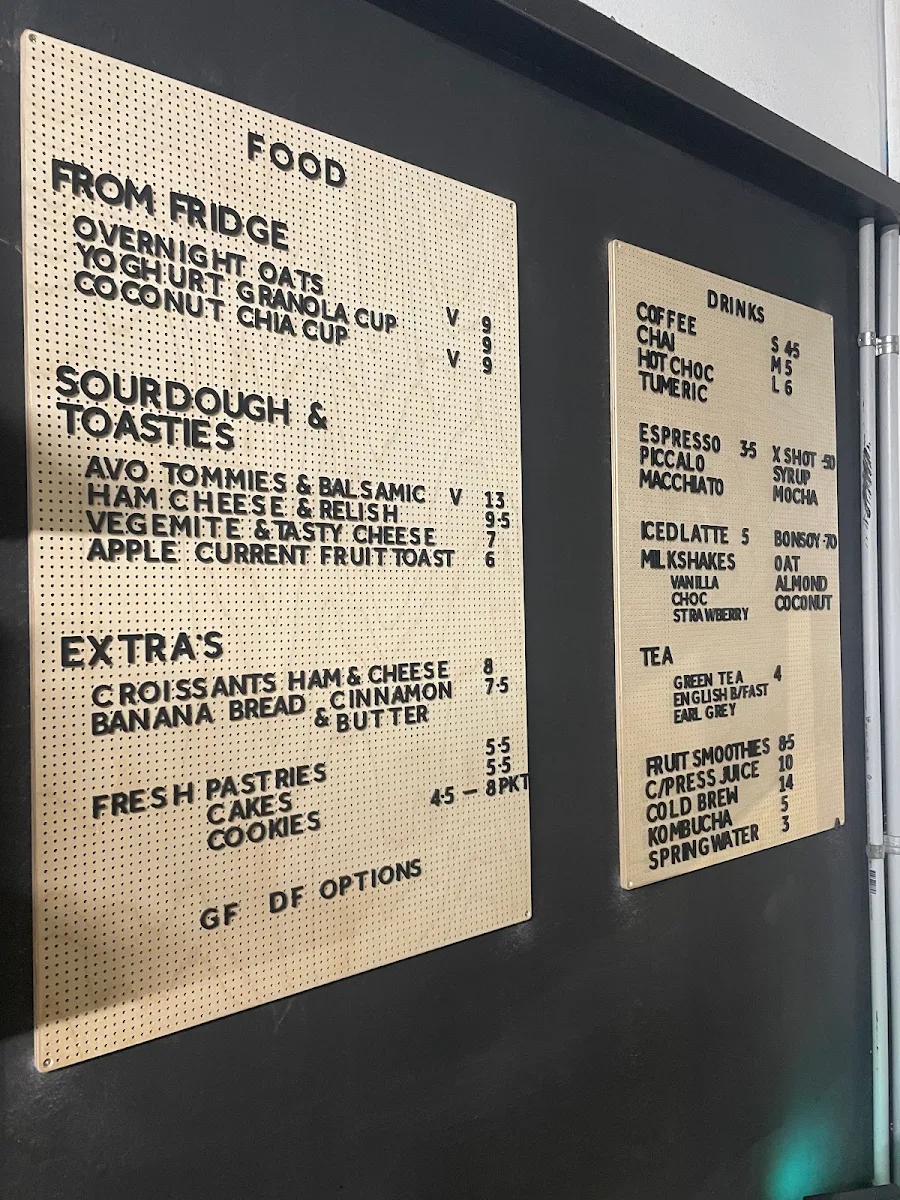 FOOD
FROM FRIDGE
OVERNIGHT OATS V 9
YOGHURT GRANOLA CUP 9
COCONUT CHIA CUP V 9
SOURDOUGH &
TOASTIES
AVO TOMMIES & BALSAMIC V 13
HAM CHEESE & RELISH 9·5
VEGEMITE & TASTY CHEESE 7
APPLE CURRENT FRUIT TOAST 6
EXTRA'S
CROISSANTS HAM & CHEESE 8
BANANA BREAD CINNAMON 7·5
& BUTTER
FRESH PASTRIES 5·5
CAKES 5·5
COOKIES 4·5 — 8PKT
GF DF OPTIONS
DRINKS
COFFEE S 4·5
CHAI M 5
HOT CHOC L 6
TUMERIC
ESPRESSO 3·5 X SHOT ·50
PICCALO SYRUP
MACCHIATO MOCHA
ICED LATTE 5 BONSOY ·70
MILKSHAKES OAT
VANILLA ALMOND
CHOC COCONUT
STRAWBERRY
TEA 4
GREEN TEA
ENGLISH B/FAST
EARL GREY
FRUIT SMOOTHIES 8·5
C/PRESS JUICE 10
COLD BREW 14
KOMBUCHA 5
SPRING WATER 3